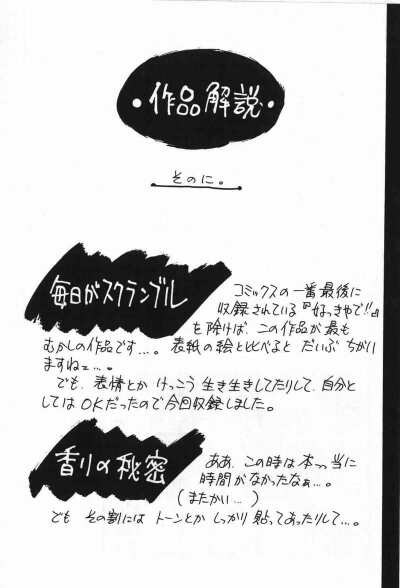 ・作品解説・
そのに。
毎日がスクランブル
コミックスの一番最後に
収録されている『好っきやで!!』
を除けば、この作品が最も
むかしの作品です…。表紙の絵と比べると だいぶ ちがい
ますねェ…。
でも、表情とか けっこう 生き生きしてたりして、自分と
してはOKだったので今回収録しました。
香りの秘密
ああ、この時は本っ当に
時間がなかったなぁ…。
(またかい…)
でも その割には トーンとか しっかり 貼ってあったりして…。